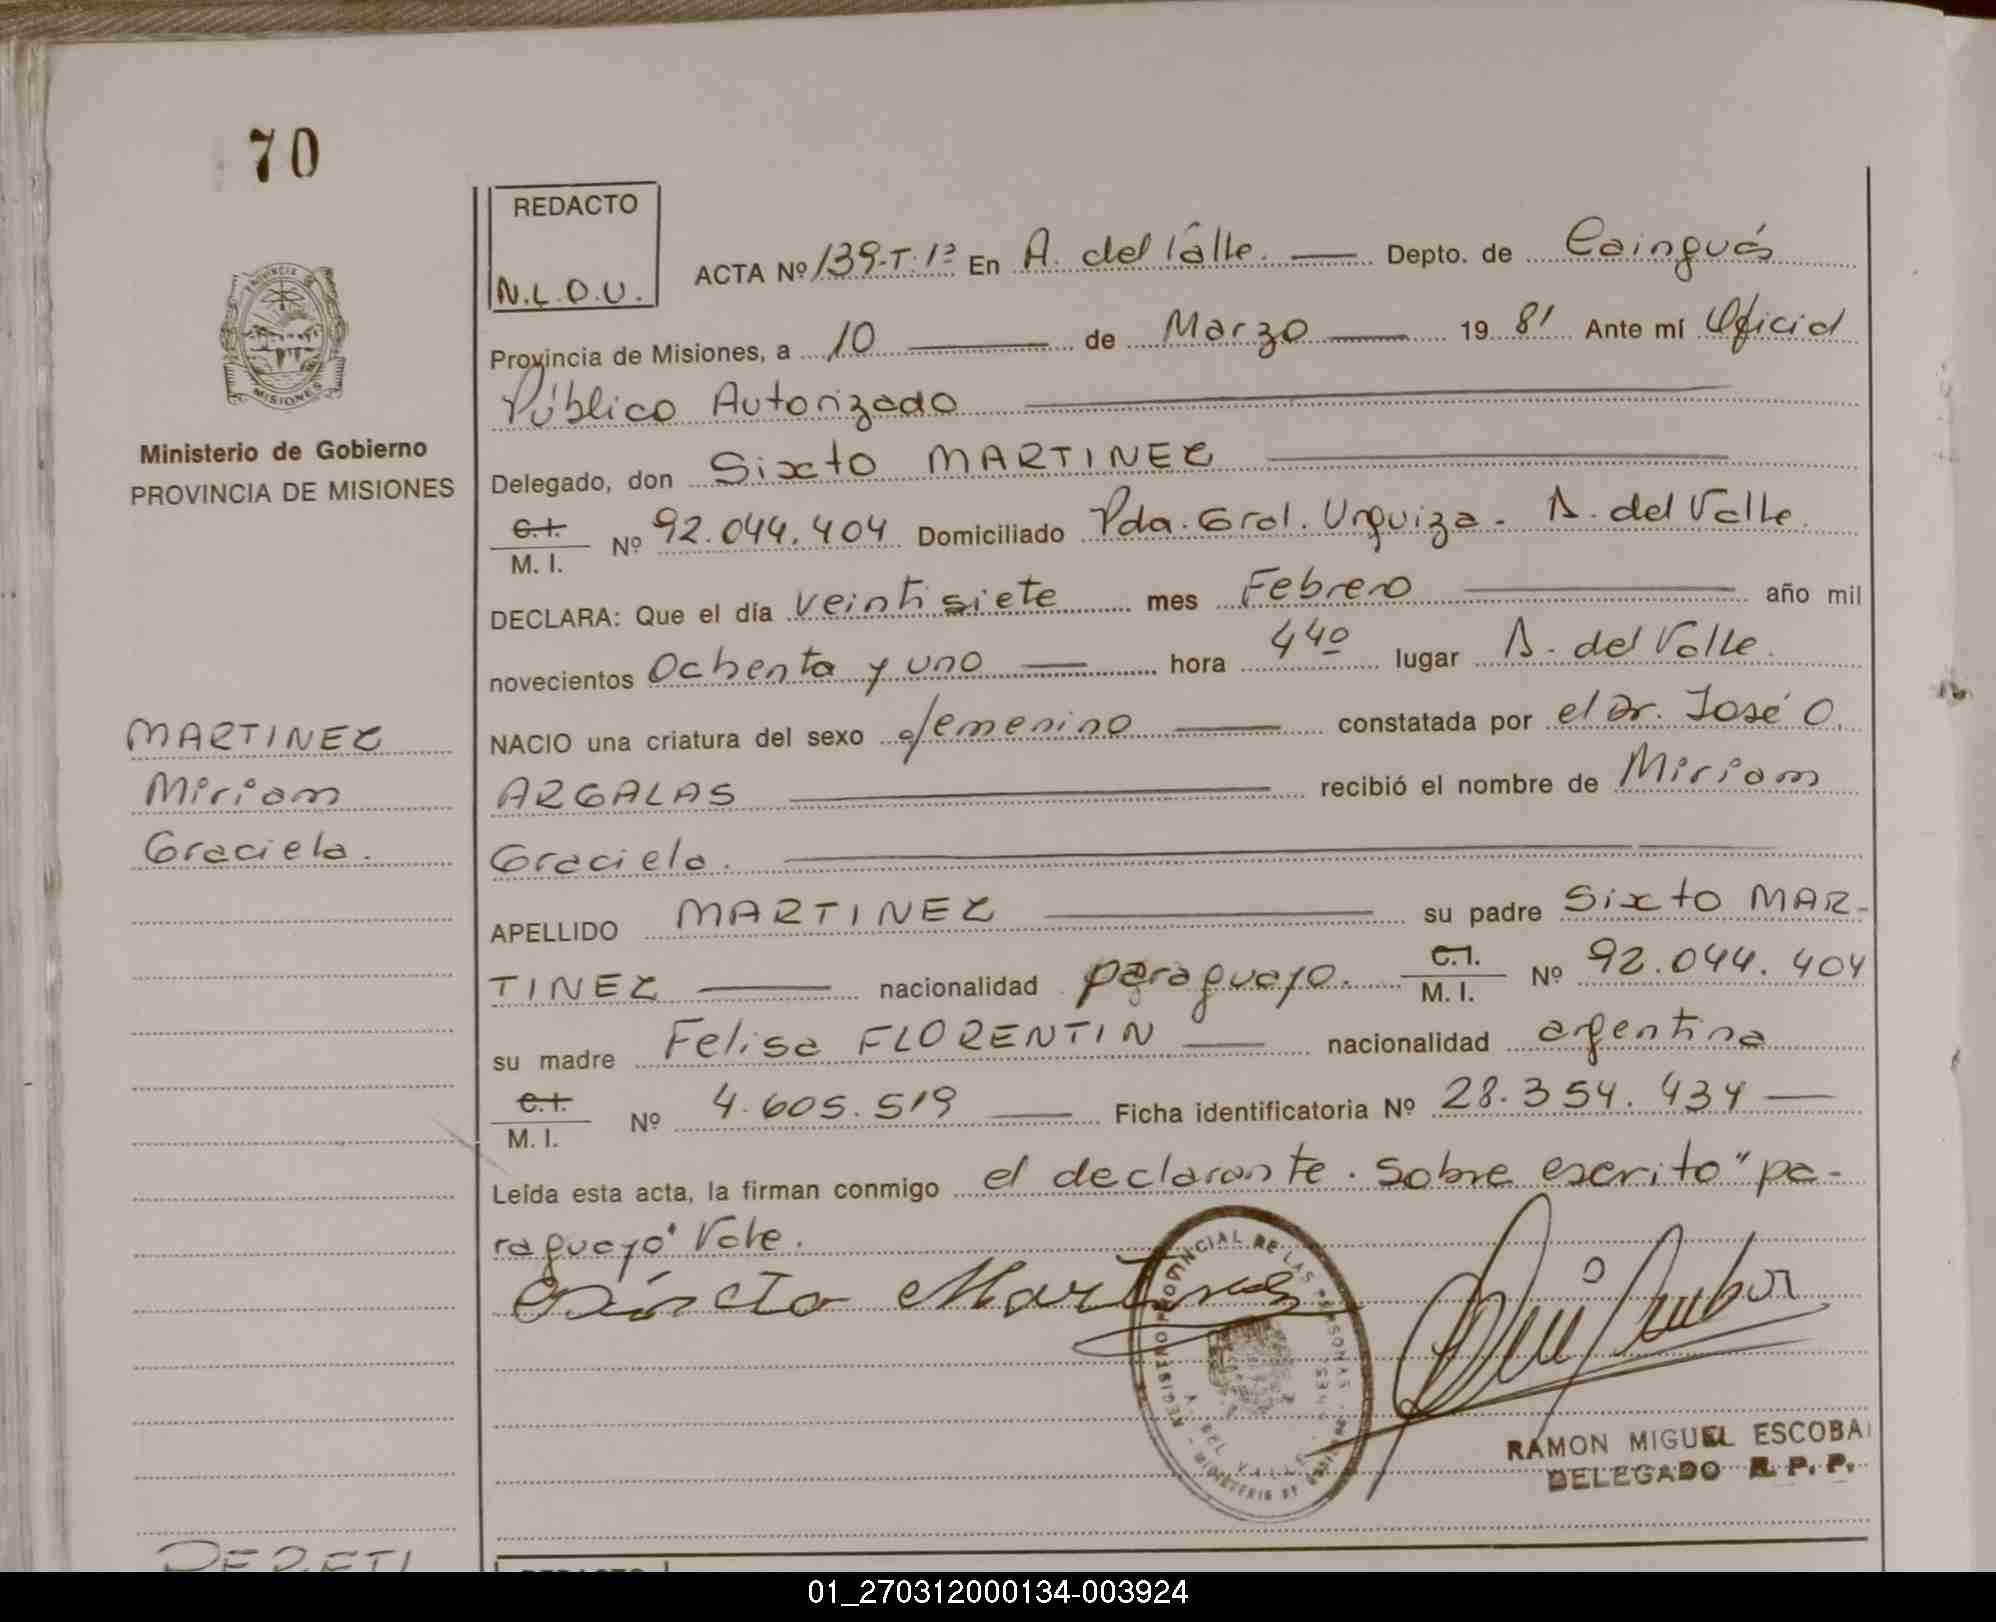 70
REDACTO
N.L.O.U.
ACTA Nº 139-T.1º En A. del Valle. Depto. de Cainguás
Provincia de Misiones, a 10 de Marzo 19 81 Ante mí Oficial
Público Autorizado
Delegado, don Sixto MARTINEZ
C.I.
M. I. Nº 92.044.404 Domiciliado Pda. Gral. Urquiza - A. del Valle.
DECLARA: Que el día veintisiete mes Febrero año mil
novecientos Ochenta y uno hora 4 40 lugar A. del Valle.
NACIO una criatura del sexo femenino constatada por el Dr. José O.
ARGALAS recibió el nombre de Miriam
Graciela.
APELLIDO MARTINEZ su padre Sixto MAR-
TINEZ nacionalidad paraguayo. C.I. M. I. Nº 92.044.404
su madre Felisa FLORENTIN nacionalidad argentina
C.I.
M. I. Nº 4.605.519 Ficha identificatoria Nº 28.354.434
Leída esta acta, la firman conmigo el declarante. Sobre escrito "pa-
raguayo" Vale.
Sixcto Martinez
REGISTRO PROVINCIAL DE LAS PERSONAS
A. DEL VALLE
RAMON MIGUEL ESCOBA
DELEGADO R. P. P.
PROVINCIA
MISIONES
Ministerio de Gobierno
PROVINCIA DE MISIONES
MARTINEZ
Miriam
Graciela.
01_270312000134-003924